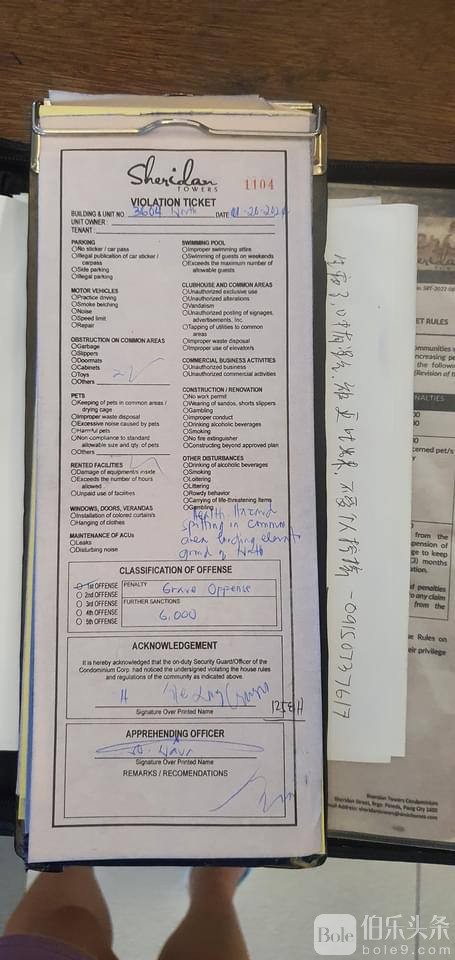 Sheridan
TOWERS
1104
VIOLATION TICKET
BUILDING & UNIT NO 3604 North DATE 01-20-202
UNIT OWNER :
TENANT :
PARKING
No sticker / car pass
Illegal publication of car sticker /
carpass
Side parking
Illegal parking
MOTOR VEHICLES
Practice driving
Smoke belching
Noise
Speed limit
Repair
OBSTRUCTION ON COMMON AREAS
Garbage
Slippers
Doormats
Cabinets
Toys
Others
PETS
Keeping of pets in common areas /
drying cage
Improper waste disposal
Excessive noise caused by pets
Harmful pets
Non-compliance to standard
allowable size and qty. of pets
Others
RENTED FACILITIES
Damage of equipments inside
Exceeds the number of hours
allowed
Unpaid use of facilities
WINDOWS, DOORS, VERANDAS
Installation of colored curtains
Hanging of clothes
MAINTENANCE OF ACUs
Leaks
Disturbing noise
SWIMMING POOL
Improper swimming attire
Swimming of guests on weekends
Exceeds the maximum number of
allowable guests
CLUBHOUSE AND COMMON AREAS
Unauthorized exclusive use
Unauthorized alterations
Vandalism
Unauthorized posting of signages,
advertisements, Inc.
Tapping of utilities to common
areas
Improper waste disposal
Improper use of elevator/s
COMMERCIAL BUSINESS ACTIVITIES
Unauthorized business
Unauthorized commercial activities
CONSTRUCTION / RENOVATION
No work permit
Wearing of sandos, shorts slippers
Gambling
Improper conduct
Drinking alcoholic beverages
Smoking
No fire extinguisher
Constructing beyond approved plan
OTHER DISTURBANCES
Drinking of alcoholic beverages
Smoking
Loitering
Littering
Rowdy behavior
Carrying of life-threatening items
Gambling
Health Hazard
spitting in common
area landing elevator
ground North
CLASSIFICATION OF OFFENSE
1st OFFENSE
2nd OFFENSE
3rd OFFENSE
4th OFFENSE
5th OFFENSE
PENALTY Grave Oppense
FURTHER SANCTIONS
6,000
ACKNOWLEDGEMENT
It is hereby acknowledged that the on-duty Security Guard/Officer of the
Condominium Corp. had noticed the undersigned violating the house rules
and regulations of the community as indicated above.
Signature Over Printed Name
APPREHENDING OFFICER
Signature Over Printed Name
REMARKS / RECOMENDATIONS
09150737617
ET RULES
ENALTIES
from the
pension of
ge to keep
months
penalties
to any claim
from the
e Rules on
eir privilege
Sheridan Towers Condominium
Sheridan Street, Brgy.
Bole 伯乐头条
bole9.com